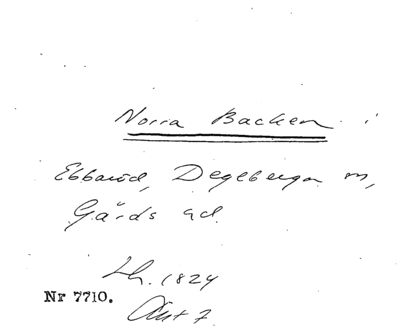 Norra Backen i
Ebbaröd, Degeberga sn,
Gärds hd.
Lh. 1824
Nr 7710.
Akt 7